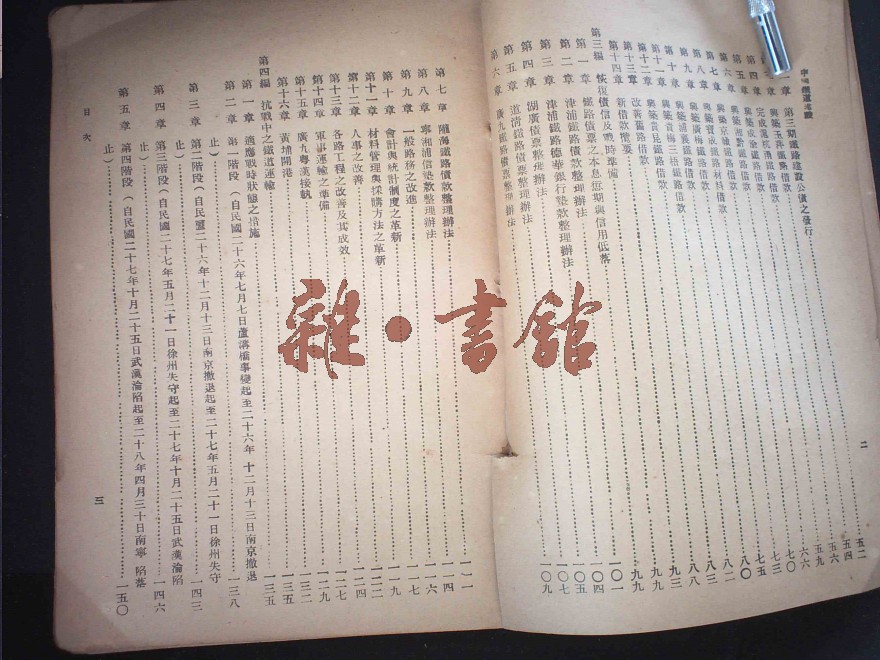 二
第二章　第三期鐵路建設公債之發行……五二
興築玉萍鐵路借款……五四
第四章　完成滬杭甬鐵路借款……五九
第五章　興築成渝鐵路借款……六六
第六章　興築湘黔鐵路借款……七〇
第七章　興築京贛鐵路借款……七三
第八章　興築寶成鐵路材料借款……七五
第九章　興築廣梅鐵路借款……八〇
第十章　興築貴梅鐵路借款……八二
第十一章　興築浦襄鐵路借款……八三
第十二章　興築貴昆鐵路借款……八八
第十三章　改善舊路借款……九三
第十四章　新借款權要……九九
第三編　恢復債信及戰時準備……九九
第一章　鐵路債票之本息愆期與信用低落……一〇一
第二章　津浦鐵路債票整理辦法……一〇四
第三章　津浦鐵路德華銀行墊款整理辦法……一〇五
第四章　湖廣鐵路債票整理辦法……一〇七
第五章　道清鐵路債票整理辦法……一〇九
第六章　廣九鐵路債票整理辦法……一〇九
第七章　隴海鐵路債款整理辦法……一一一
第八章　寧湘浦信墊款整理辦法……一一四
第九章　一般路務之改進……一一六
第十章　會計與統計制度之革新……一一七
第十一章　材料管理與採購方法之革新……一一九
第十二章　人事之改善……一二二
第十三章　各路工程之改善及其成效……一二四
第十四章　軍事運輸之準備……一二七
第十五章　廣九粵漢接軌……一二九
第十六章　黃埔開港……一三二
第四編　抗戰中之鐵道運輸……一三五
第一章　適應戰時狀態之措施……一三五
第二章　第一階段（自民國二十六年七月七日蘆溝橋事變起至二十六年十二月十三日南京撤退
止）……一三八
第三章　第二階段（自民國二十六年十二月十三日南京撤退起至二十七年五月二十一日徐州失守
止）……一四三
第四章　第三階段（自民國二十七年五月二十一日徐州失守起至二十七年十月二十五日武漢淪陷
止）……一四六
第五章　第四階段（自民國二十七年十月二十五日武漢淪陷起至二十八年四月三十日南寧陷落
止）……一五〇
目次
三
雜·書館